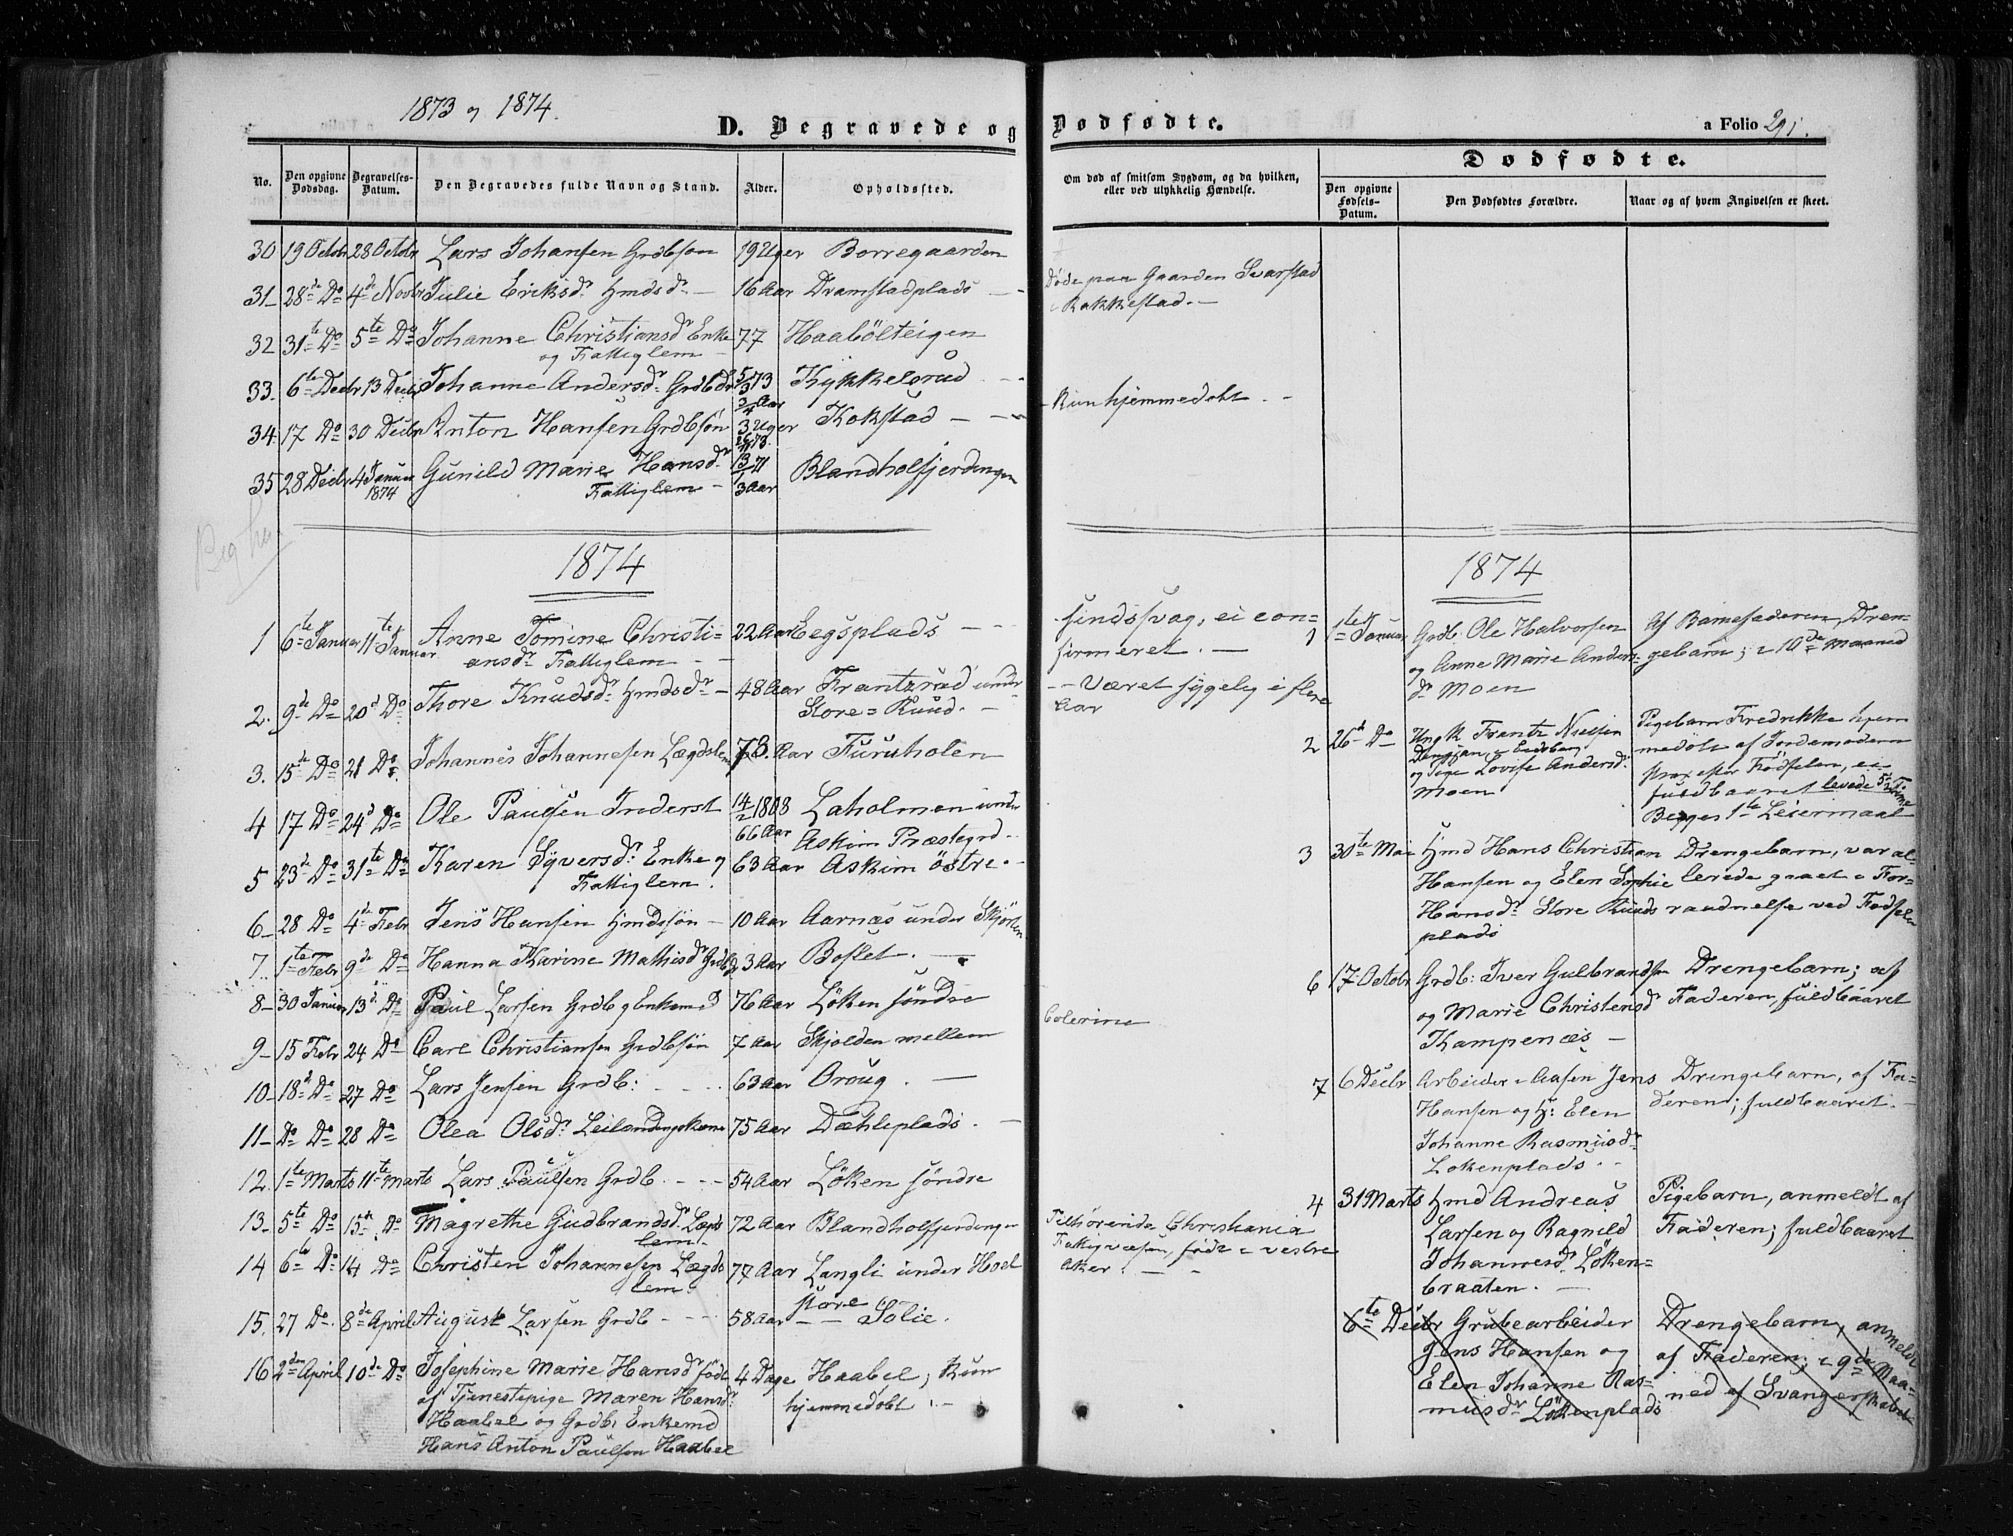 1873 og 1874.
D. Begravede og Dødfødte.
a Folio 291.
No.
Den opgivne Dødsdag.
Begravelses-Datum.
Den Begravedes fulde Navn og Stand.
Alder.
Opholdssted.
Om død af smitsom Sygdom, og da hvilken, eller ved ulykkelig Hændelse.
Dødfødte.
Den opgivne Fødsels-Datum.
Den Dødfødtes Forældre.
Naar og af hvem Angivelsen er skeet.
30 19 Octobr 28 Octobr Lars Johansen Grdbsøn 19 Uger Borregaarden
31 28de Do 4de Novbr Julie Eriksdr Hmdsdr 16 Aar Dramstadplads Døde paa Gaarden Svarstad
i Rakkestad.
32 31te Do 5te Do Johanne Christiansdr Enke 77 Haabölteigen
og Fattiglem
33. 6te Decbr 13 Decbr Johanne Andersdr Grdbdr 5/3 73 Kykkelsrud
3/4 Aar Kun hjemmedøbt
34 17 Do 30 Decbr Anton Hansen Grdbsøn 3 Uger Kokstad
35 28 Decbr 4 Januar Gunild Marie Hansdr 13/1 71 Blandholfjerdingen
1874 Fattiglem 3 Aar
1874
1 6te Januar 11te Januar Anne Tomine Christi= 22 Aar Eegsplads sindssvag, ei con=
ansdr Fattiglem firmeret.
2. 9de Do 20d Do Thore Knudsdr Hmdsdr 48 Aar Frantzrud under Været sygelig i flere
Store=Ruud. Aar
3. 15de Do 21 Do Johannes Johannesen Lægdslem 73 Aar Furuholen
4 17 Do 24d Do Ole Paulsen Inderst 14/2 1808 Laholmen under
66 Aar Askim Præstegrd
5 23de Do 31te Do Karen Syversdr Enke og 63 Aar Askim östre
Fattiglem.
6 28 Do 4de Febr Jens Hansen Hmdssøn 10 Aar Aarnæs under Skjörten
7. 1te Febr 9de Do Hanna Karine Mathisdr Grdbdr 3 Aar Boslet.
8 30 Januar 13d Do Paul Larsen Grdb og Enkemd 76 Aar Löken söndre
9 15 Febr 24 Do Carl Christiansen Grdbsön 7 Aar Skjolden mellem Colerine
10 18d Do 27 Do Lars Jensen Grdb: 63 Aar Oroug.
11 Do Do 28 Do Olea Olsdr Leilændingskone 75 Aar Dæhleplads.
12. 1te Marts 11te Marts Lars Paulsen Grdb. 54 Aar Löken söndre
13 5te Do 15de Do Magrethe Gudbrandsdr Lægds 72 Aar Blandholfjerdingen Tilhørende Christiania
lem. Fattigvæsen, født i vestre
14 6te Do 14 Do Christen Johannesen Lægds 77 Aar Langli under Hoel Aker.
lem. store
15. 27 Do 8de April August Larsen Grdb 58 Aar Solie.
16 2den April 10de Do Josephine Marie Hansdr født 4 Dage Haabel; Kun
af Tjenestepige Maren Hansdr hjemmedøbt
Haabel og Grdb: Enkemd
Hans Anton Paulsen Haabel
1874
1 1te Januar Grdb. Ole Halvorsen Af Barnefaderen, Dren=
og Anne Marie Anders= gebarn; i 10de Maaned
dr Moen
2 26d Do Ungk Frantz Nielsen Pigebarn Fredrikke hjem
Eidsberg medøbt af Jordemoderen
og Pige Lovise Andersdr strax efter Födselen, ei
Moen fuldbaaret levede 5 Time
Begges 1te Leiermaal
3 30te Mai Hmd Hans Christian Drengebarn, var al=
Hansen og Elen Sophie lerede gaaet i For=
Hansdr Store Ruuds raadnelse ved Fødselen
plads
6 17 Octobr Grdb: Iver Gulbrandsen Drengebarn; af
og Marie Christensd Faderen, fuldbaaret
Kampenæs
7 6 Decbr Arbeider i Aasen Jens Drengebarn, af Fa=
Hansen og H: Elen deren; fuldbaaret.
Johanne Rasmusdr
Lökenplads
4 31 Marts Hmd Andreas Pigebarn, anmeldt af
Larsen og Ragnild Faderen; fuldbaaret
Johannesdr Löken=
braaten.
6te Decbr Grubearbeider Drengebarn, anmeldt
Jens Hansen og af Faderen; i 9de Maa=
Elen Johanne Ras= ned af Svangerskabet
musdr Lökenplads